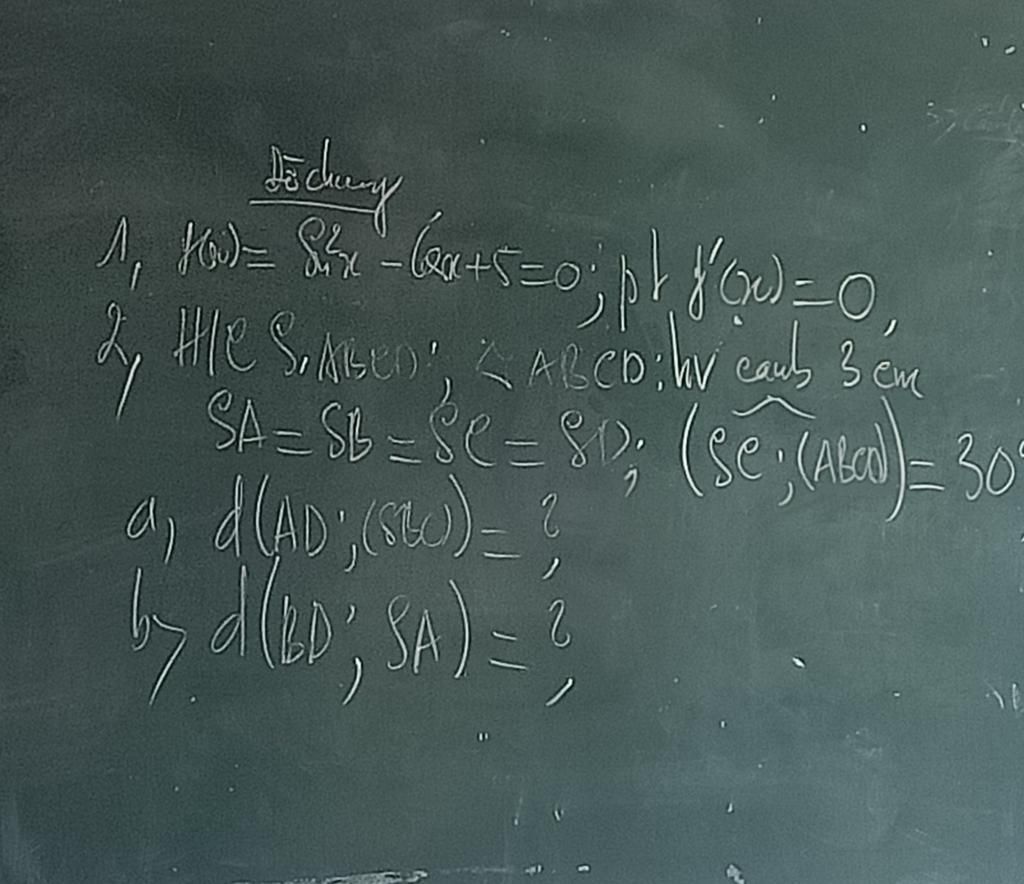 Đề chung
1, f(x) = Sin²x - 6x + 5 = 0; pt f'(x) = 0,
2, H/c S.ABCD; ABCD: hv cạnh 3 cm
SA = SB = SC = SD; (SC; (ABCD)) = 30°
a, d(AD; (SBC)) = ?
b, d(BD; SA) = ?